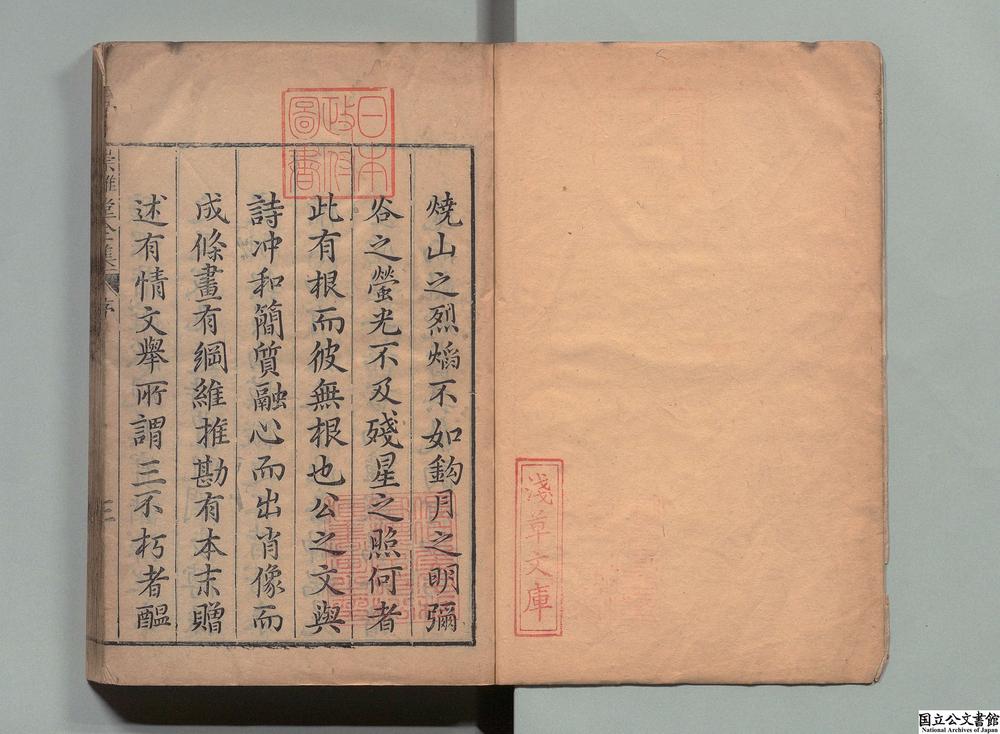 淺草文庫
日本
政府
圖書
燒山之烈熖不如鈎月之明彌
谷之螢光不及殘星之照何者
此有根而彼無根也公之文與
詩冲和簡質融心而出肖像而
成條畫有綱維推勘有本末贈
述有情文舉所謂三不朽者醞
崇雅堂全集
序
三
国立公文書館
National Archives of Japan